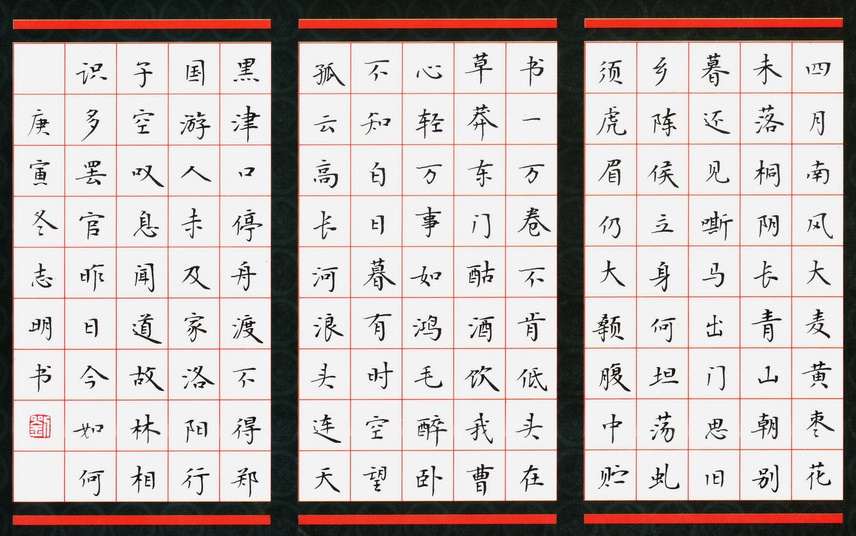 四月南风大麦黄枣花
未落桐阴长青山朝别
暮还见嘶马出门思旧
乡陈侯立身何坦荡虬
须虎眉仍大颡腹中贮
书一万卷不肯低头在
草莽东门酤酒饮我曹
心轻万事如鸿毛醉卧
不知白日暮有时空望
孤云高长河浪头连天
黑津口停舟渡不得郑
国游人未及家洛阳行
子空叹息闻道故林相
识多罢官昨日今如何
庚寅冬志明书